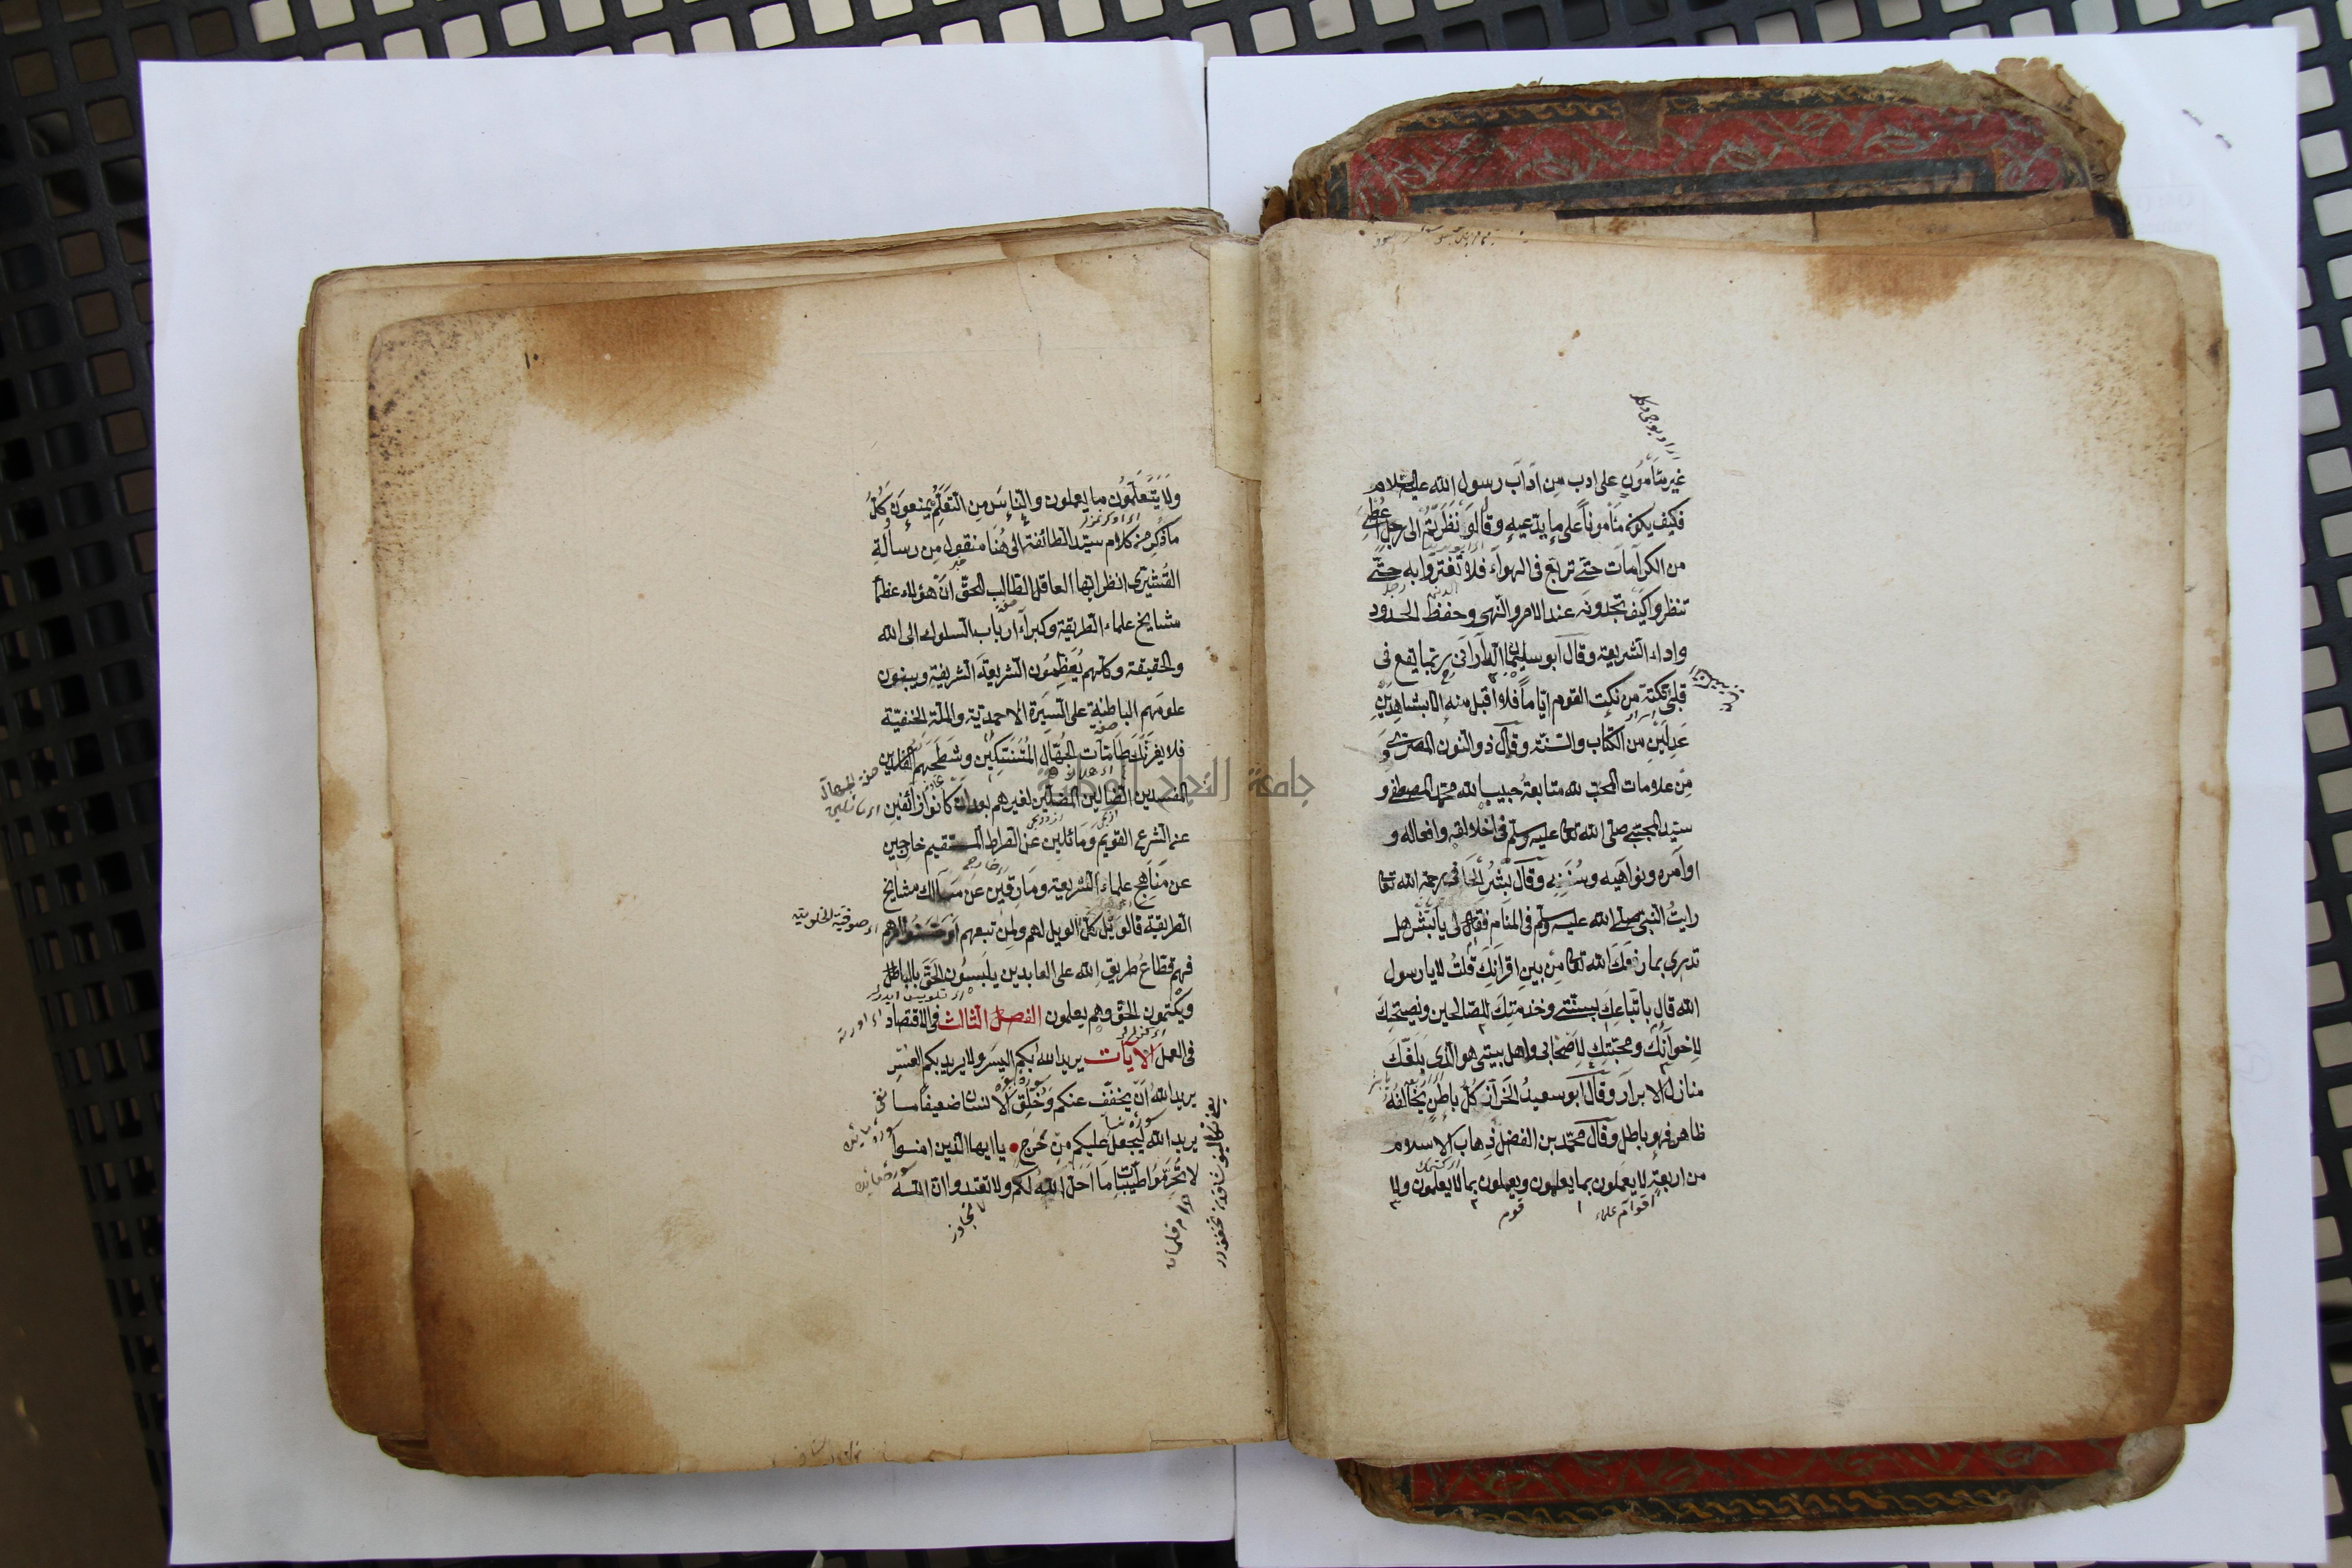 غير مأمون على ادب من آداب رسول الله عليه السلام
فكيف يكون مأموناً على ما يدّعيه وقال لو نظرتم الى رجل اعطي
من الكرامات حتى تربّع فى الهواء فلا تغترّوا به حتّى
تنظروا كيف تجدونه عند الامر والنهى وحفظ الحدود
واداء الشريعة وقال ابو سليمان الدّارانى ربّما يقع فى
قلبى نكتة من نكت القوم ايّاماً فلا اقبل منه الا بشاهدين
عدلين من الكتاب والسنّة وقال ذو النون المصرى
من علامات المحبّ لله متابعة حبيب الله محمّد المصطفى و
سيّد المجتبى صلى الله تعا عليه وسلم فى اخلاقه وافعاله و
اوامره ونواهيه وسننه وقال بشر الحافى رحمة الله تعا
رايت النبى صلى الله عليه وسلم فى المنام فقال لى يا بشر هل
تدرى بما رفعك الله تعا من بين اقرانك قلت لا يا رسول
الله قال باتّباعك بسنّتى وخدمتك للصّالحين ونصيحتك
لاخوانك ومحبّتك لاصحابى واهل بيتى هو الذى بلغك
منازل الابرار وقال ابو سعيد الخرّاز كلّ باطن يخالفه
ظاهر فهو باطل وقال محمّد بن الفضل ذهاب الاسلام
من اربعة لا يعملون بما يعلمون ويعملون بما لا يعلمون ولا
اقوام علماء
قوم
١٠
ولا يتعلّمون ما يعملون والناس من التعلّم يمنعون كلّ
ما ذكر من كلام سيّد الطائفة الى هنا منقول من رسالة
القشيرى انظر ايّها العاقل الطّالب للحقّ انّ هؤلاء عظماء
مشايخ علماء الطريقة وكبراء ارباب السلوك الى الله
والحقيقة وكلّهم يعظّمون الشريعة الشريفة ويبنون
علومهم الباطنة على السيرة الاحمديّة والملّة الحنفيّة
فلا يغرنّك طامّات الجهّال المتنسّكين وشطحهم الفاسدين
المفسدين الضّالّين المضلّين لغيرهم بعد ان كانوا زائغين
عن الشرع القويم ومائلين عن الصّراط المستقيم خارجين
عن مناهج علماء الشريعة ومارقين عن مسالك مشايخ
الطريقة فالويل كلّ الويل لهم ولمن تبعهم
فهم قطّاع طريق الله على العابدين يلبسون الحقّ بالباطل
ويكتمون الحقّ وهم يعلمون الفصل الثالث فى الاقتصاد
فى العمل الآيات يريد الله بكم اليسر ولا يريد بكم العسر
يريد الله ان يخفّف عنكم وخلق الانسان ضعيفاً ما
يريد الله ليجعل عليكم من حرج يا ايها الذين امنوا
لا تحرّموا طيّبات ما احلّ الله لكم ولا تعتدوا انّ الله
صفة الجهال
صوفية الخلوتية
جامعة النجاح الوطنية